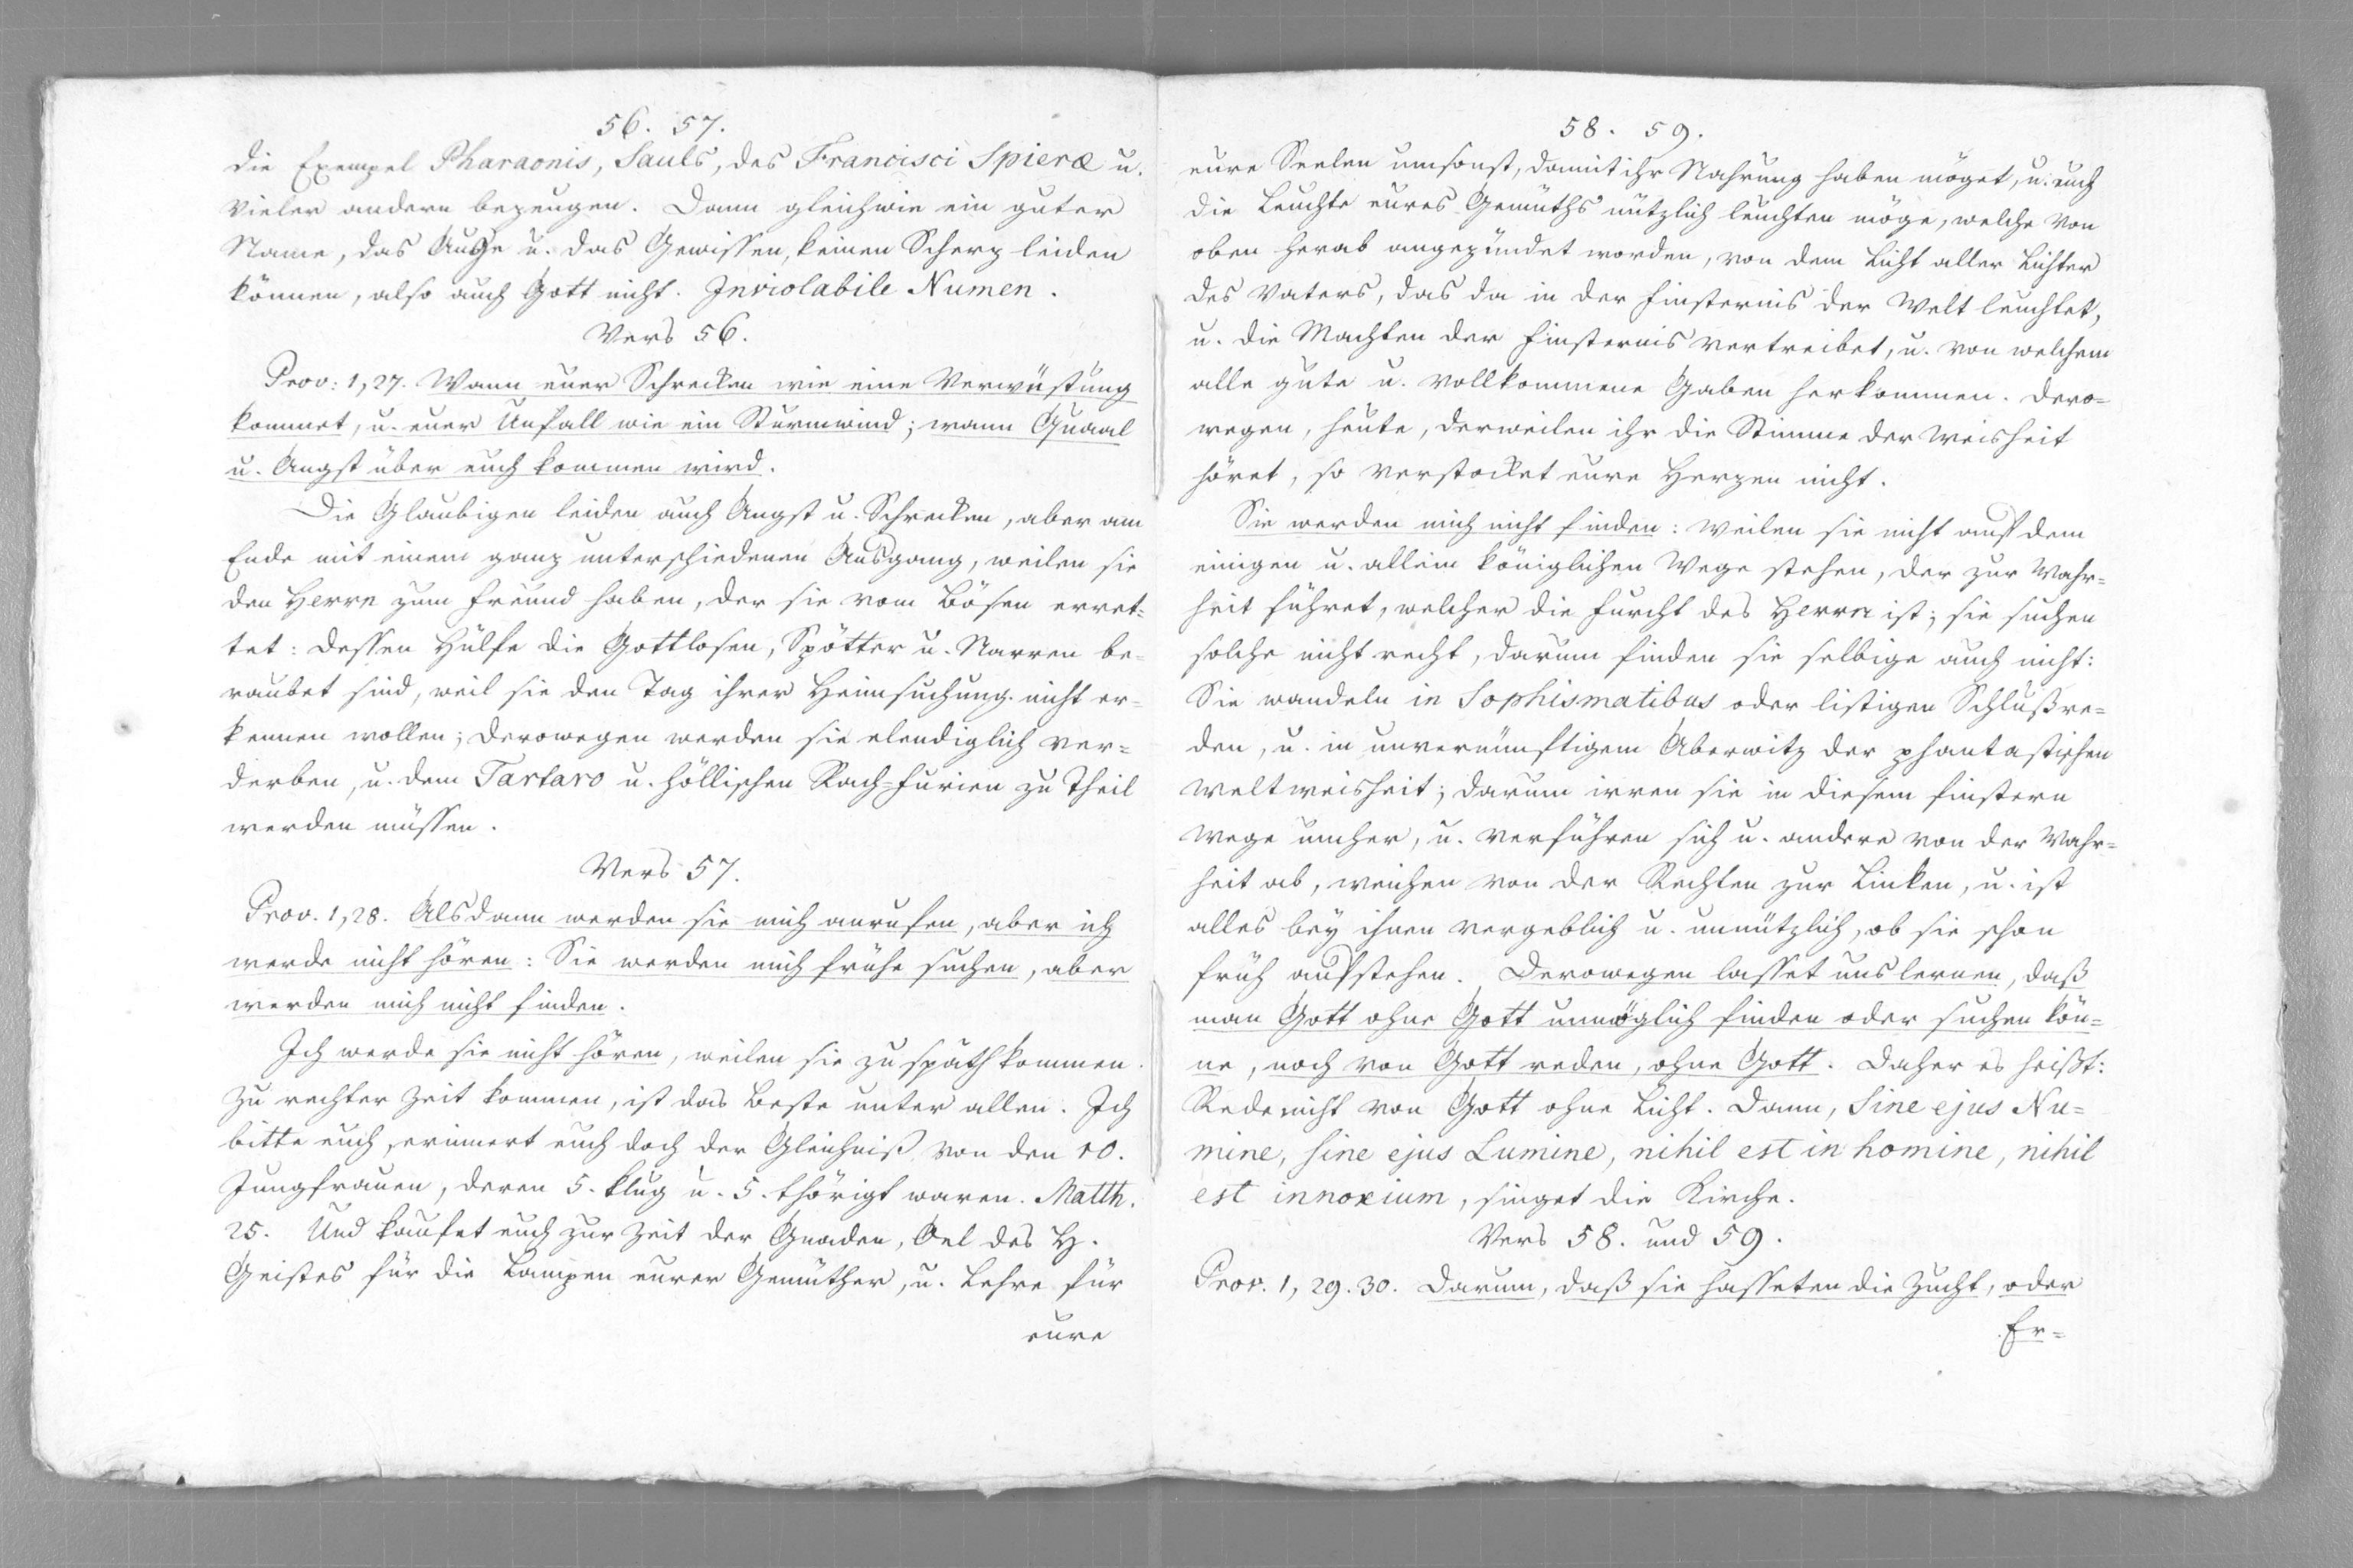 56. 57.
die Exempel Pharaonis, Sauls, des Francisci Spieræ u.
vieler andern bezeugen. Dann gleichwie ein guter
Name, das Auge u. das Gewissen, keinen Scherz leiden
können, also auch Gott nicht. Inviolabile Numen.
Vers 56.
Prov: 1, 27. Wann euer Schrecken wie eine Verwüstung
kommet, u. euer Unfall wie ein Sturmwind; wann Quaal
u. Angst über euch kommen wird.
Die Glaubigen leiden auch Angst u. Schrecken, aber am
Ende mit einem ganz unterschiedenen Ausgang, weilen sie
den Herrn zum Freund haben, der sie vom Bösen erret=
tet: dessen Hülfe die Gottlosen, Spötter u. Narren be=
raubet sind, weil sie den Tag ihrer Heimsuchung nicht er=
kennen wollen; derowegen werden sie elendiglich ver=
derben, u. dem Tartaro u. höllischen Rach=Furien zu Theil
werden müssen.
Vers 57.
Prov. 1, 28. Alsdann werden sie mich anrufen, aber ich
werde nicht hören: Sie werden mich frühe suchen, aber
werden mich nicht finden.
Ich werde sie nicht hören, weilen sie zu späth kommen.
Zu rechter Zeit kommen, ist das Beste unter allen. Ich
bitte euch, erinnert euch doch der Gleichniß von den 10.
Jungfrauen, deren 5. klug u. 5. thörigt waren. Matth.
25. Und kaufet euch zur Zeit der Gnaden, Oel des H.
Geistes für die Lampen eurer Gemüther, u. Lehre für
eure
58. 59.
eure Seelen umsonst, damit ihr Nahrung haben möget, u. euch
die Leuchte eures Gemüths nützlich leuchten möge, welche von
oben herab angezündet worden, von dem Licht aller Lichter
des Vaters, das da in der Finsternis der Welt leuchtet,
u. die Machten der Finsternis vertreibet, u. von welchem
alle gute u. vollkommene Gaben herkommen. Dero=
wegen, heute, derweilen ihr die Stimme der Weisheit
höret, so verstocket eure Herzen nicht.
Sie werden mich nicht finden: weilen sie nicht auf dem
einigen u. allein königlichen Wege stehen, der zur Wahr=
heit führet, welcher die Furcht des Herrn ist; sie suchen
solche nicht recht, darum finden sie selbige auch nicht:
Sie wandeln in Sophismatibus oder listigen Schlußre=
den, u. in unvernünftigem Aberwitz der phantastischen
Weltweisheit; darum irren sie in diesem finstern
Wege umher, u. verführen sich u. andere von der Wahr=
heit ab, weichen von der Rechten zur Linken, u. ist
alles bey ihnen vergeblich u. unnützlich, ob sie schon
früh aufstehen. Derowegen lasset uns lernen, daß
man Gott ohne Gott unmöglich finden oder suchen kön=
ne, noch von Gott reden, ohne Gott. Daher es heißt:
Rede nicht von Gott ohne Licht. Dann, Sine ejus Nu=
mine, sine ejus Lumine, nihil est in homine, nihil
est innoxium, singet die Kirche.
Vers 58. und 59.
Prov. 1, 29. 30. Darum, daß sie hasseten die Zucht, oder
Er=